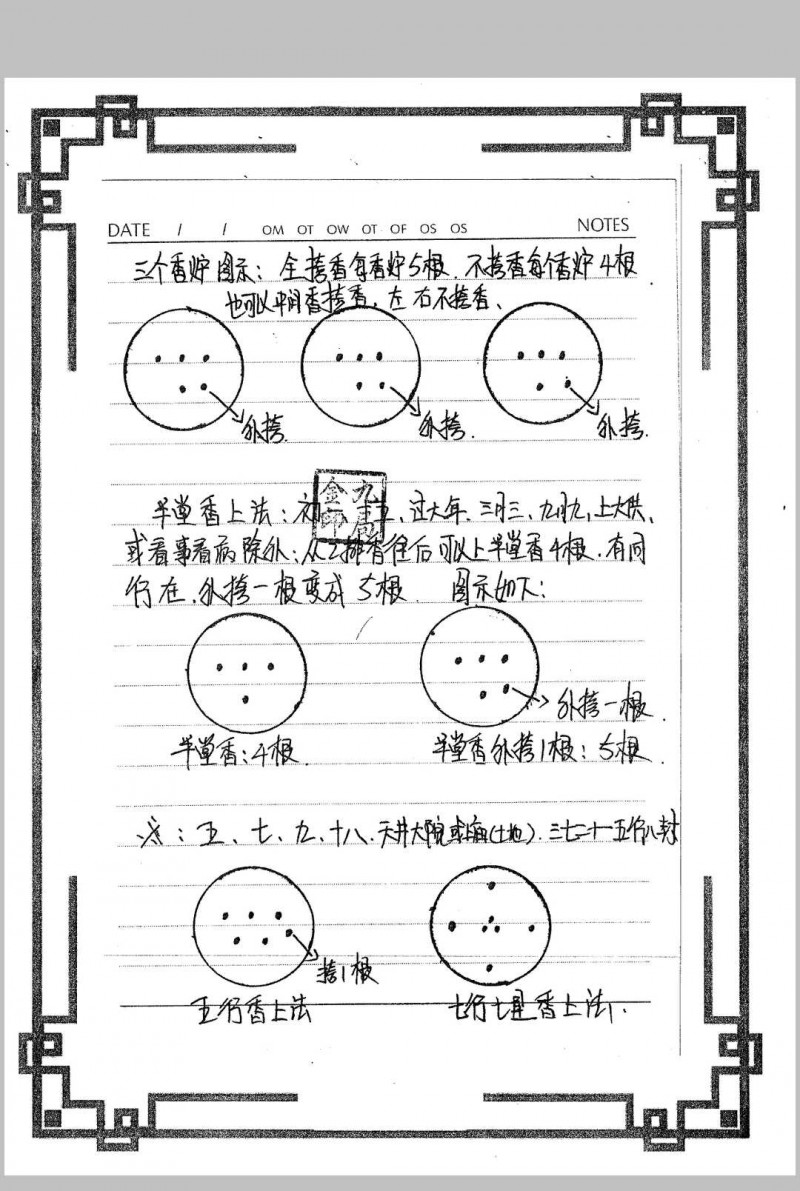 DATE / / OM OT OW OT OF OS OS NOTES
三个香炉图示：全挎香每香炉5根．不挎香每个香炉4根
也可以中间香挎香．左右不挎香、
外挎．
外挎．
外挎．
金九
印局
半堂香上法：初一、十五、过大年．三月三、九月九，上大供、
或看事看病除外；从2排香往后可以上半堂香4根．有同
行在．外挎一根变成5根．图示如下：
外挎一根．
半堂香：4根．
半堂香外挎1根：5根．
：五、七、九、十八．天井大院或庙(土地)．三七二十一五行八卦
挎1根
五行香上法
七行七星香上法．